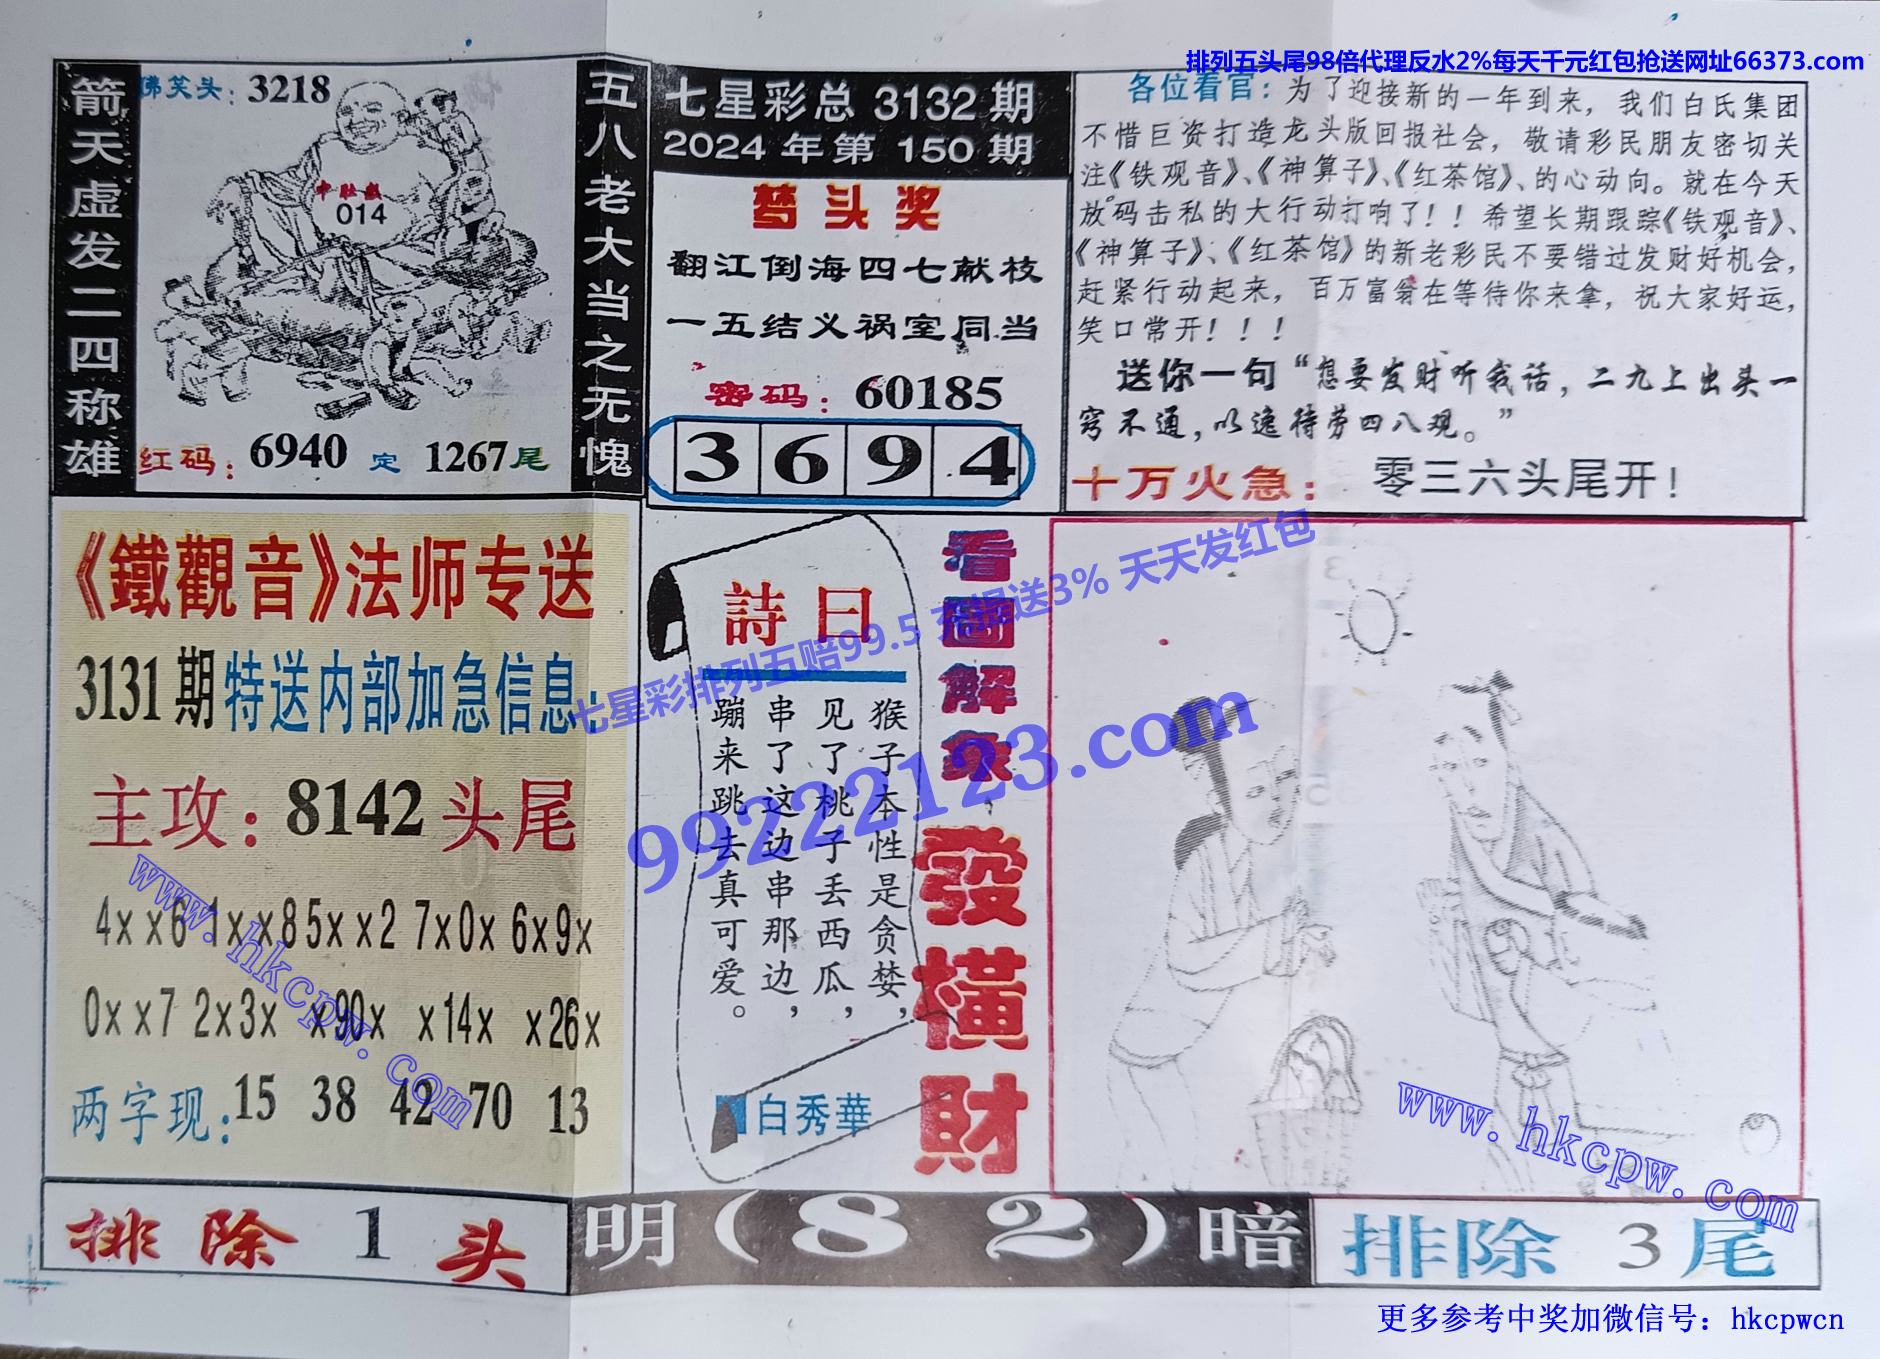 排列五头尾98倍代理反水2%每天千元红包抢送网址66373.com
箭天虚发二四称雄
佛笑头：3218
中肚数
014
红码：6940 定 1267尾
五八老大当之无愧
七星彩总 3132 期
2024 年第 150 期
梦头奖
翻江倒海四七献枝
一五结义祸室同当
密码：60185
3 6 9 4
各位看官：为了迎接新的一年到来，我们白氏集团
不惜巨资打造龙头版回报社会，敬请彩民朋友密切关
注《铁观音》、《神算子》、《红茶馆》、的心动向。就在今天
放码击私的大行动打响了！！希望长期跟踪《铁观音》、
《神算子》、《红茶馆》的新老彩民不要错过发财好机会，
赶紧行动起来，百万富翁在等待你来拿，祝大家好运，
笑口常开！！！
送你一句“想要发财听我话，二九上出头一
窍不通，以逸待劳四八观。”
十万火急：零三六头尾开！
《鐵觀音》法师专送
3131期特送内部加急信息：
主攻：8142头尾
4xx6 1xx8 5xx2 7x0x 6x9x
0xx7 2x3x x90x x14x x26x
两字现：15 38 42 70 13
詩曰
猴子本性是贪婪，
见了桃子丢西瓜，
串了这边串那边，
蹦来跳去真可爱。
白秀華
看圖解象
發橫財
七星彩排列五赔99.5 充提送3% 天天发红包
99222123.com
www.hkcpw.com
www.hkcpw.com
排除 1 头
明(82)暗
排除 3 尾
更多参考中奖加微信号：hkcpwcn